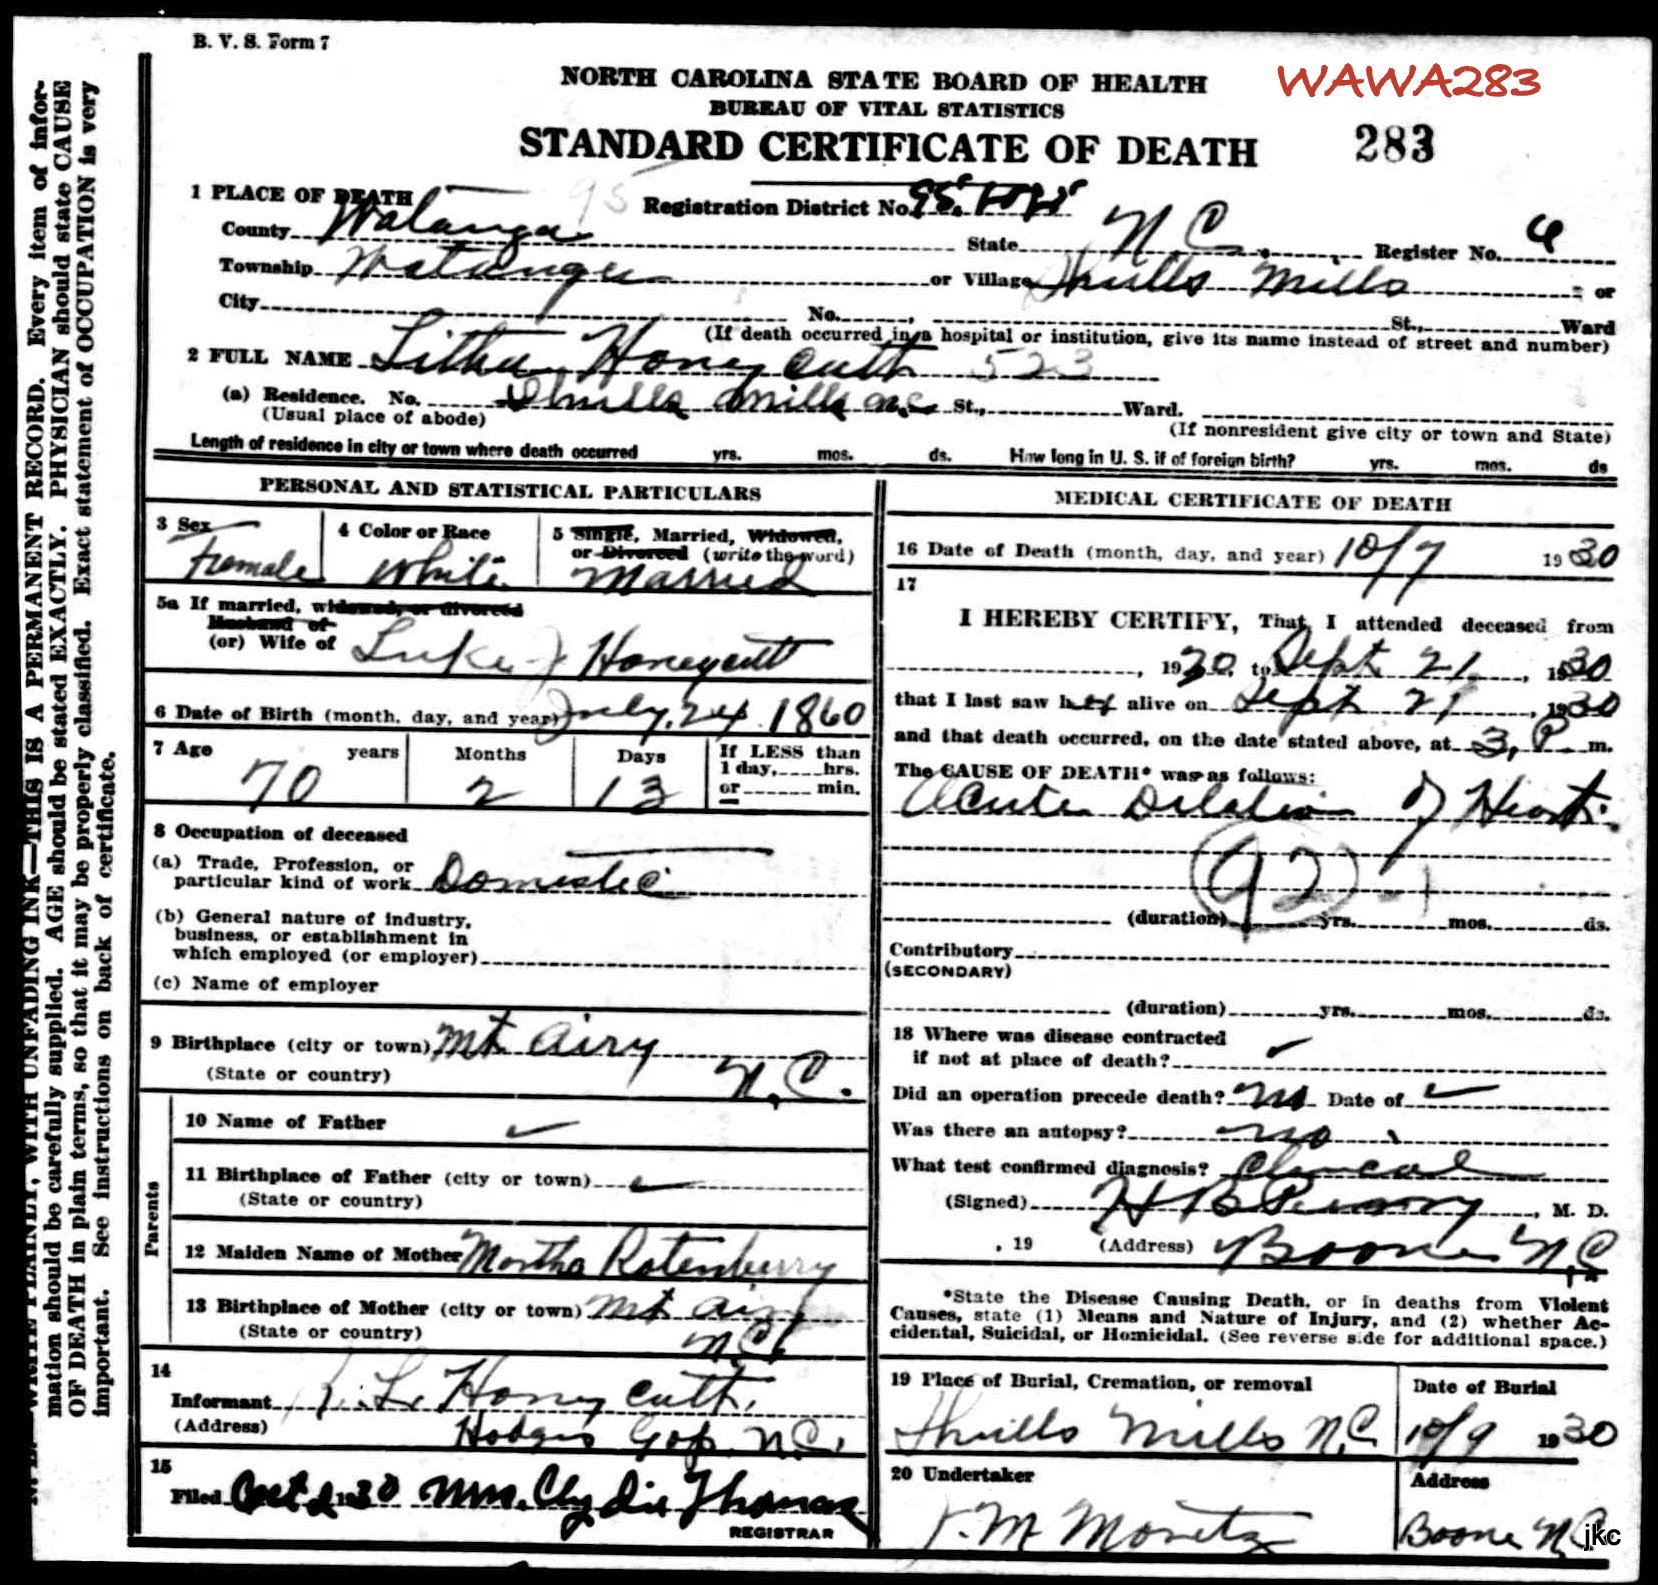 B. V. S. Form 7
NORTH CAROLINA STATE BOARD OF HEALTH
WAWA283
BUREAU OF VITAL STATISTICS
STANDARD CERTIFICATE OF DEATH 283
1 PLACE OF DEATH 95 Registration District No. 95
County Watauga State N. C. Register No. 4
Township Watauga or Village Shulls Mills or
City No. , St., Ward
(If death occurred in a hospital or institution, give its name instead of street and number)
2 FULL NAME Litha Honeycutt 523
(a) Residence. No. Shulls Mills N.C. St., Ward.
(Usual place of abode) (If nonresident give city or town and State)
Length of residence in city or town where death occurred yrs. mos. ds. How long in U. S. if of foreign birth? yrs. mos. ds
PERSONAL AND STATISTICAL PARTICULARS
3 Sex 4 Color or Race 5 Single, Married, Widowed,
or Divorced (write the word)
Female White Married
5a If married, widowed, or divorced
Husband of
(or) Wife of Luke J Honeycutt
6 Date of Birth (month, day, and year) July. 24 1860
7 Age years Months Days If LESS than
1 day, hrs.
or min.
70 2 13
8 Occupation of deceased
(a) Trade, Profession, or
particular kind of work Domestic
(b) General nature of industry,
business, or establishment in
which employed (or employer)
(c) Name of employer
9 Birthplace (city or town) Mt. Airy
(State or country) N. C.
Parents
10 Name of Father ✓
11 Birthplace of Father (city or town) ✓
(State or country)
12 Maiden Name of Mother Martha Rotenberry
13 Birthplace of Mother (city or town) Mt Airy
(State or country) N.C.
14
Informant L. Honeycutt.
(Address) Hodges Gap N.C.
15
Filed Oct 1930 Mrs. Clyde Thomas
REGISTRAR
MEDICAL CERTIFICATE OF DEATH
16 Date of Death (month, day, and year) 10/7 1930
17
I HEREBY CERTIFY, That I attended deceased from
, 1930, to Sept 21, 1930
that I last saw her alive on Sept 21, 1930
and that death occurred, on the date stated above, at 3, P m.
The CAUSE OF DEATH* was as follows:
Acute Dilation of Heart.
92
(duration) yrs. mos. ds.
Contributory
(SECONDARY)
(duration) yrs. mos. ds.
18 Where was disease contracted
if not at place of death? ✓
Did an operation precede death? No Date of ✓
Was there an autopsy? No
What test confirmed diagnosis? Clinical
(Signed) H B Perry, M. D.
, 19 (Address) Boone N.C
*State the Disease Causing Death, or in deaths from Violent
Causes, state (1) Means and Nature of Injury, and (2) whether Ac-
cidental, Suicidal, or Homicidal. (See reverse side for additional space.)
19 Place of Burial, Cremation, or removal Date of Burial
Shulls Mills N.C 10/9 1930
20 Undertaker Address
J. M Moretz Boone N.C.
jkc
N. B.—WRITE PLAINLY, WITH UNFADING INK—THIS IS A PERMANENT RECORD. Every item of infor-
mation should be carefully supplied. AGE should be stated EXACTLY. PHYSICIAN should state CAUSE
OF DEATH in plain terms, so that it may be properly classified. Exact statement of OCCUPATION is very
important. See instructions on back of certificate.